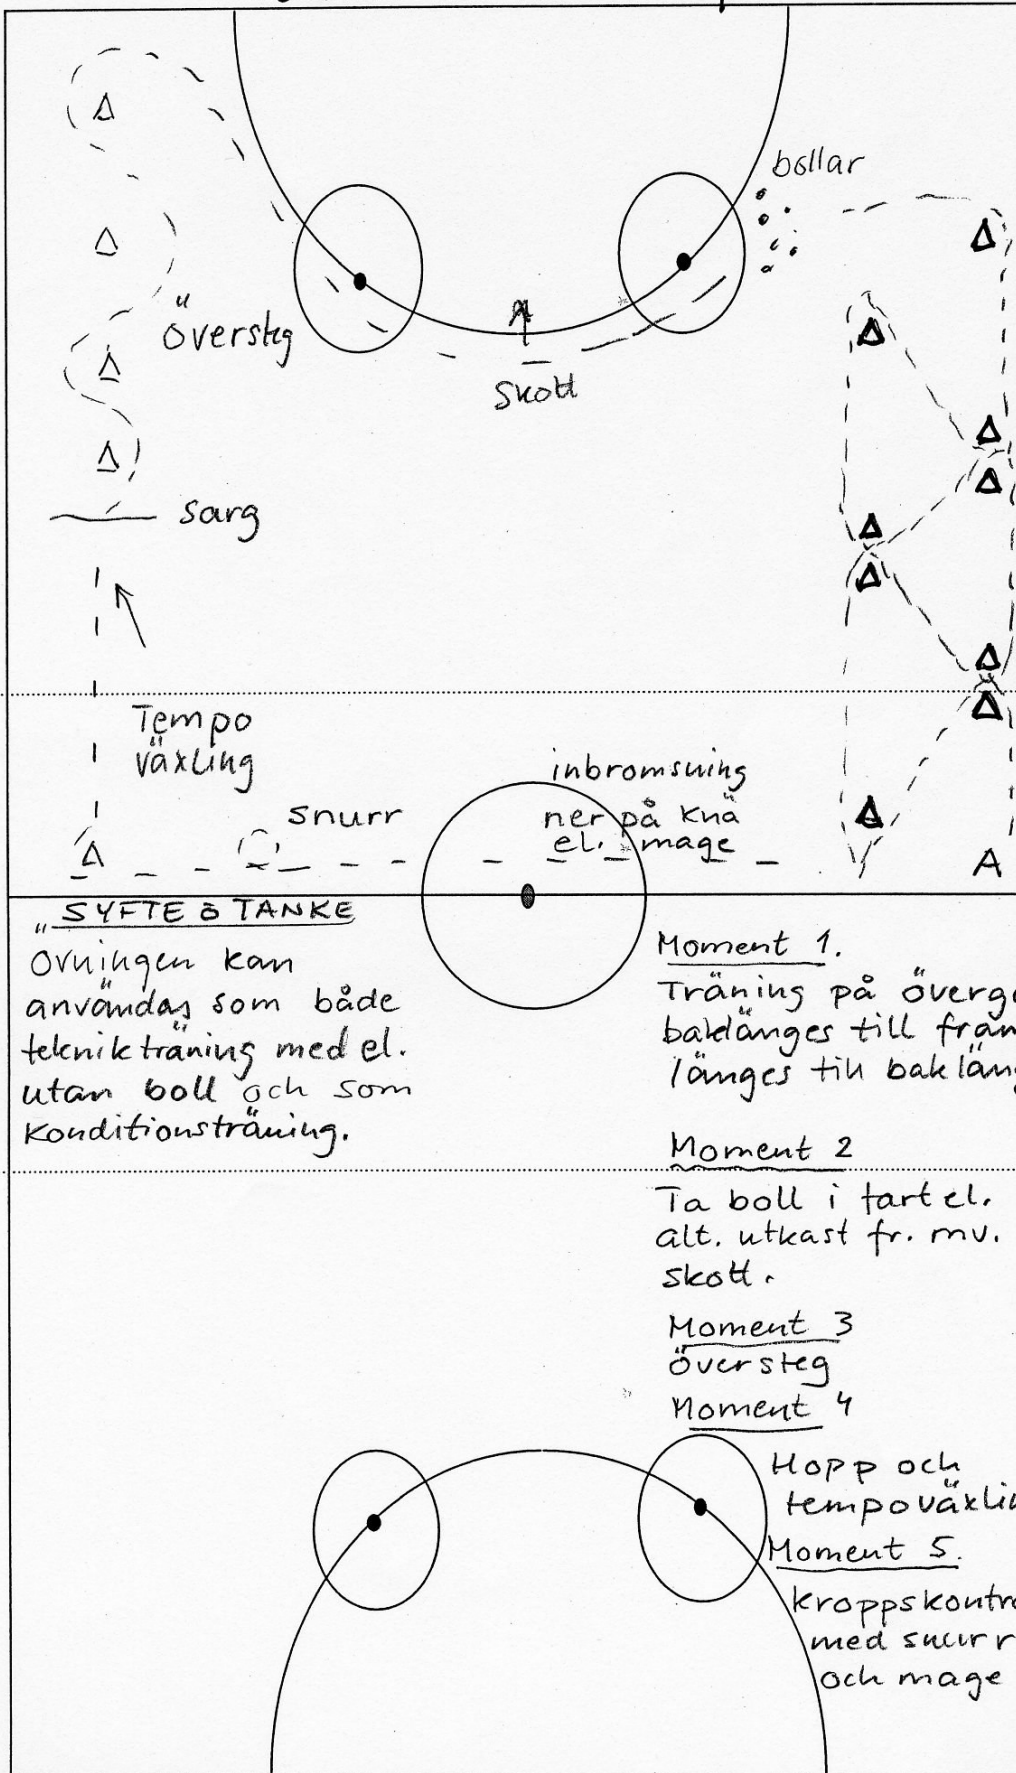 bollar
Översteg
Skott
sarg
Tempo
växling
inbromsning
snurr
ner på knä
el. mage
A
SYFTE & TANKE
Övningen kan
användas som både
teknikträning med el.
utan boll och som
Konditionsträning.
Moment 1.
Träning på överg
baklänges till fram
länges till baklän
Moment 2
Ta boll i fart el.
alt. utkast fr. mv.
skott.
Moment 3
översteg
Moment 4
Hopp och
tempoväxlin
Moment 5.
kroppskontro
med snurr
och mage